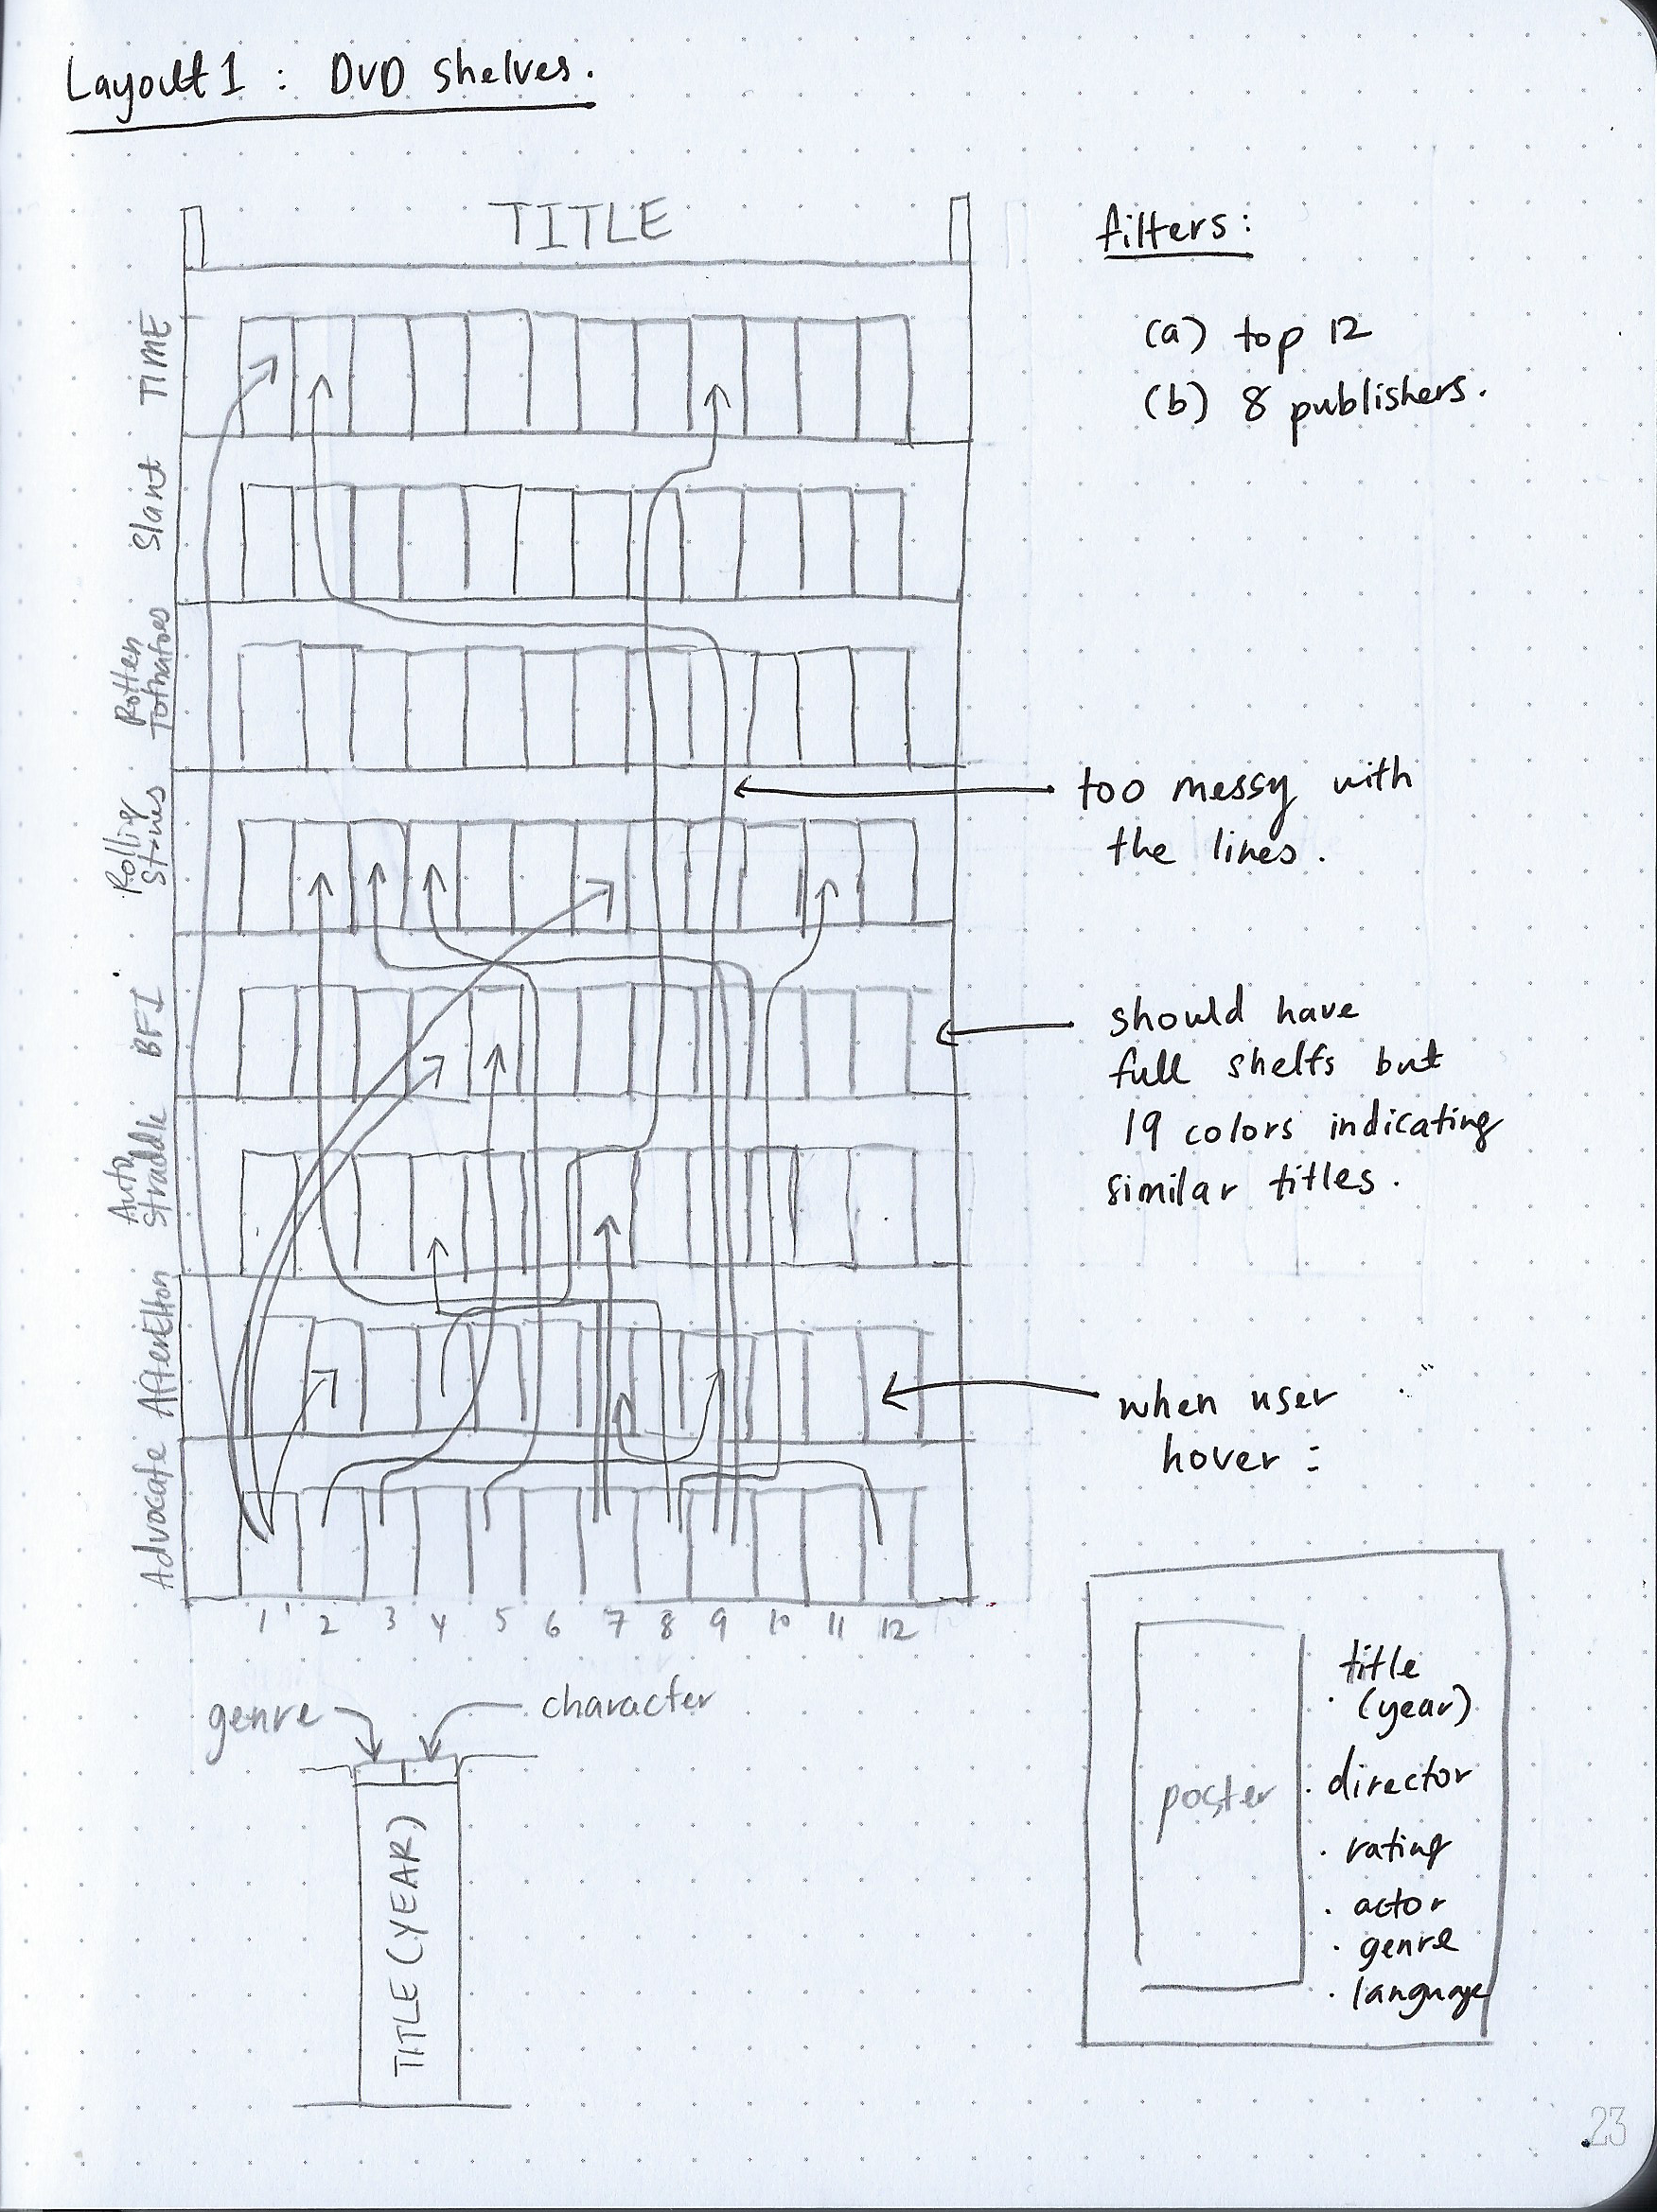 Layout 1 : DVD shelves.
TITLE
filters:
(a) top 12
(b) 8 publishers.
TIME
Slant
Rotten
Tomatoes
Rolling
Stones
BFI
Auto
Straddle
AfterEllen
Advocate
too messy with
the lines.
should have
full shelfs but
19 colors indicating
similar titles.
when user
hover :
1 2 3 4 5 6 7 8 9 10 11 12
genre
character
TITLE (YEAR)
poster
title
· (year)
· director
· rating
· actor
· genre
· language
23